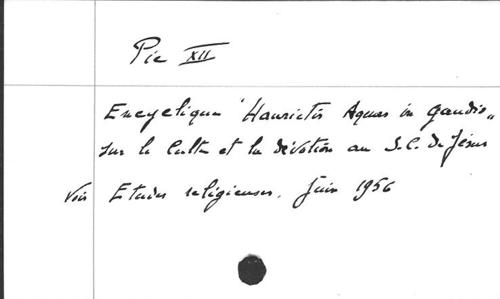 Pie XII
Encyclique "Haurietis Aquas in gaudio"
sur le Culte et la dévotion au S.C. de Jésus
Voir Etudes religieuses. Juin 1956